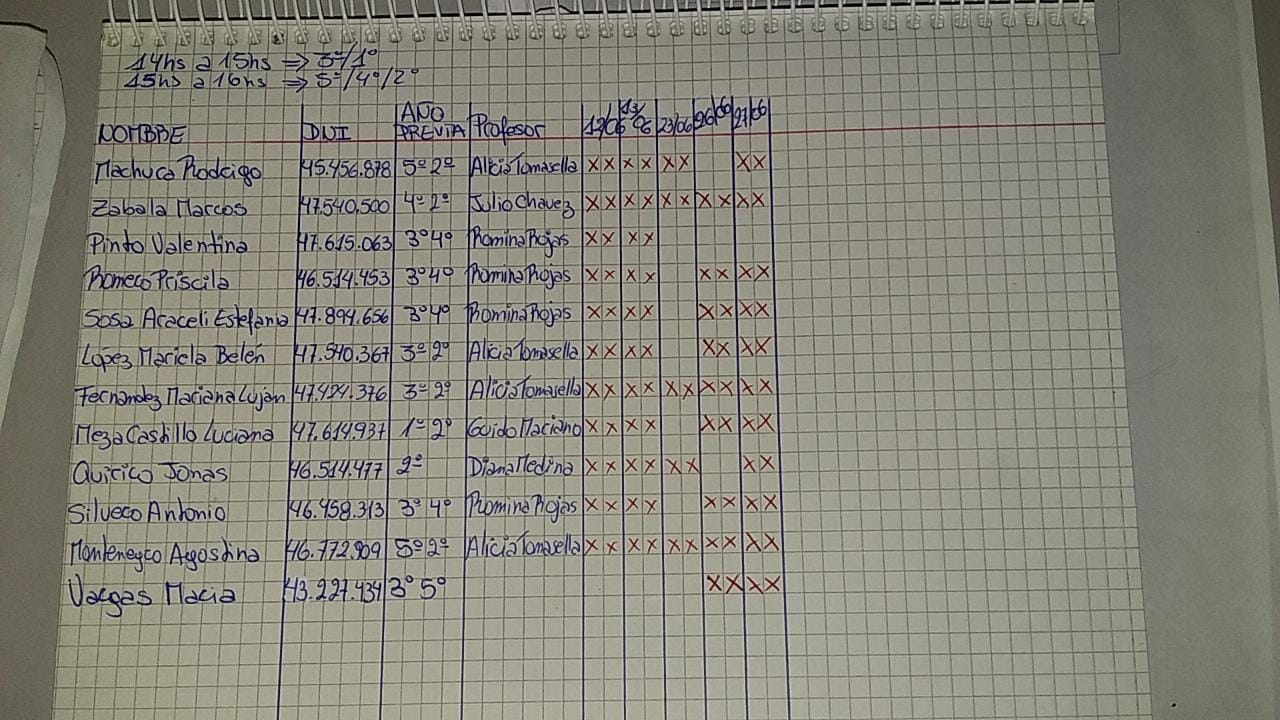 14hs a 15hs ⇒ 3º/1º
15hs a 16hs ⇒ 5º/4º/2º
NOMBRE DNI AÑO PREVIA Profesor 12/06 13/06 23/06 26/06 27/06
Machuca Rodrigo 45.456.878 5º 2º Alicia Tomasella XX XX XX XX
Zabala Marcos 47.540.500 4º 2º Julio Chavez XX XX XX XX XX
Pinto Valentina 47.615.063 3º 4º Romina Rojas XX XX
Romero Priscila 46.514.453 3º 4º Romina Rojas XX XX XX XX
Sosa Araceli Estefania 47.894.656 3º 4º Romina Rojas XX XX XX XX
López Mariela Belén 47.540.367 3º 2º Alicia Tomasella XX XX XX XX
Fernandez Mariana Lujan 47.424.376 3º 2º Alicia Tomasella XX XX XX XX XX
Meza Castillo Luciana 47.614.937 1º 2º Guido Mariano XX XX XX XX
Quirico Jonas 46.514.477 2º Diana Medina XX XX XX XX
Silvero Antonio 46.458.313 3º 4º Romina Rojas XX XX XX XX
Montenegro Agostina 46.772.909 5º 2º Alicia Tomasella XX XX XX XX XX
Vargas Maria 43.227.434 3º 5º XX XX